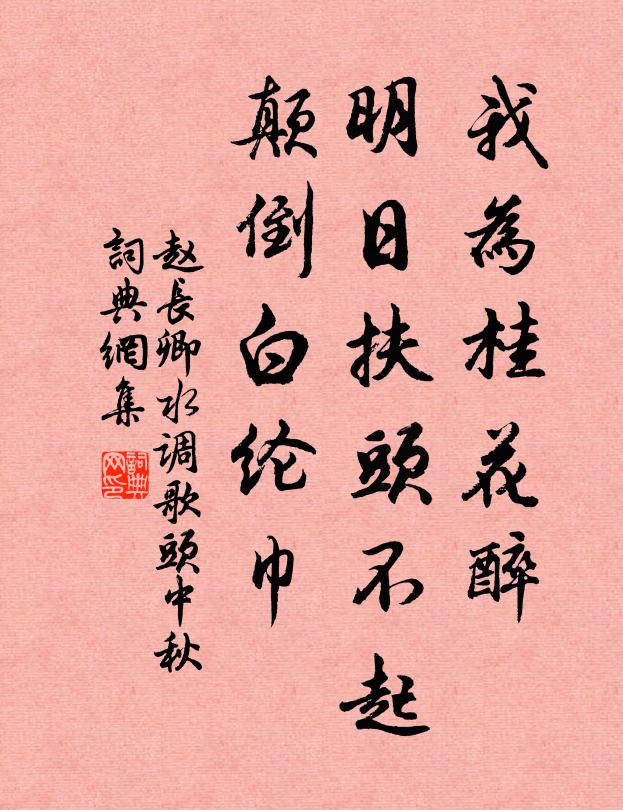 我為桂花醉
明日扶頭不起
颠倒白纶巾
赵長卿水调歌頭中秋
詞典網集
詞典网印